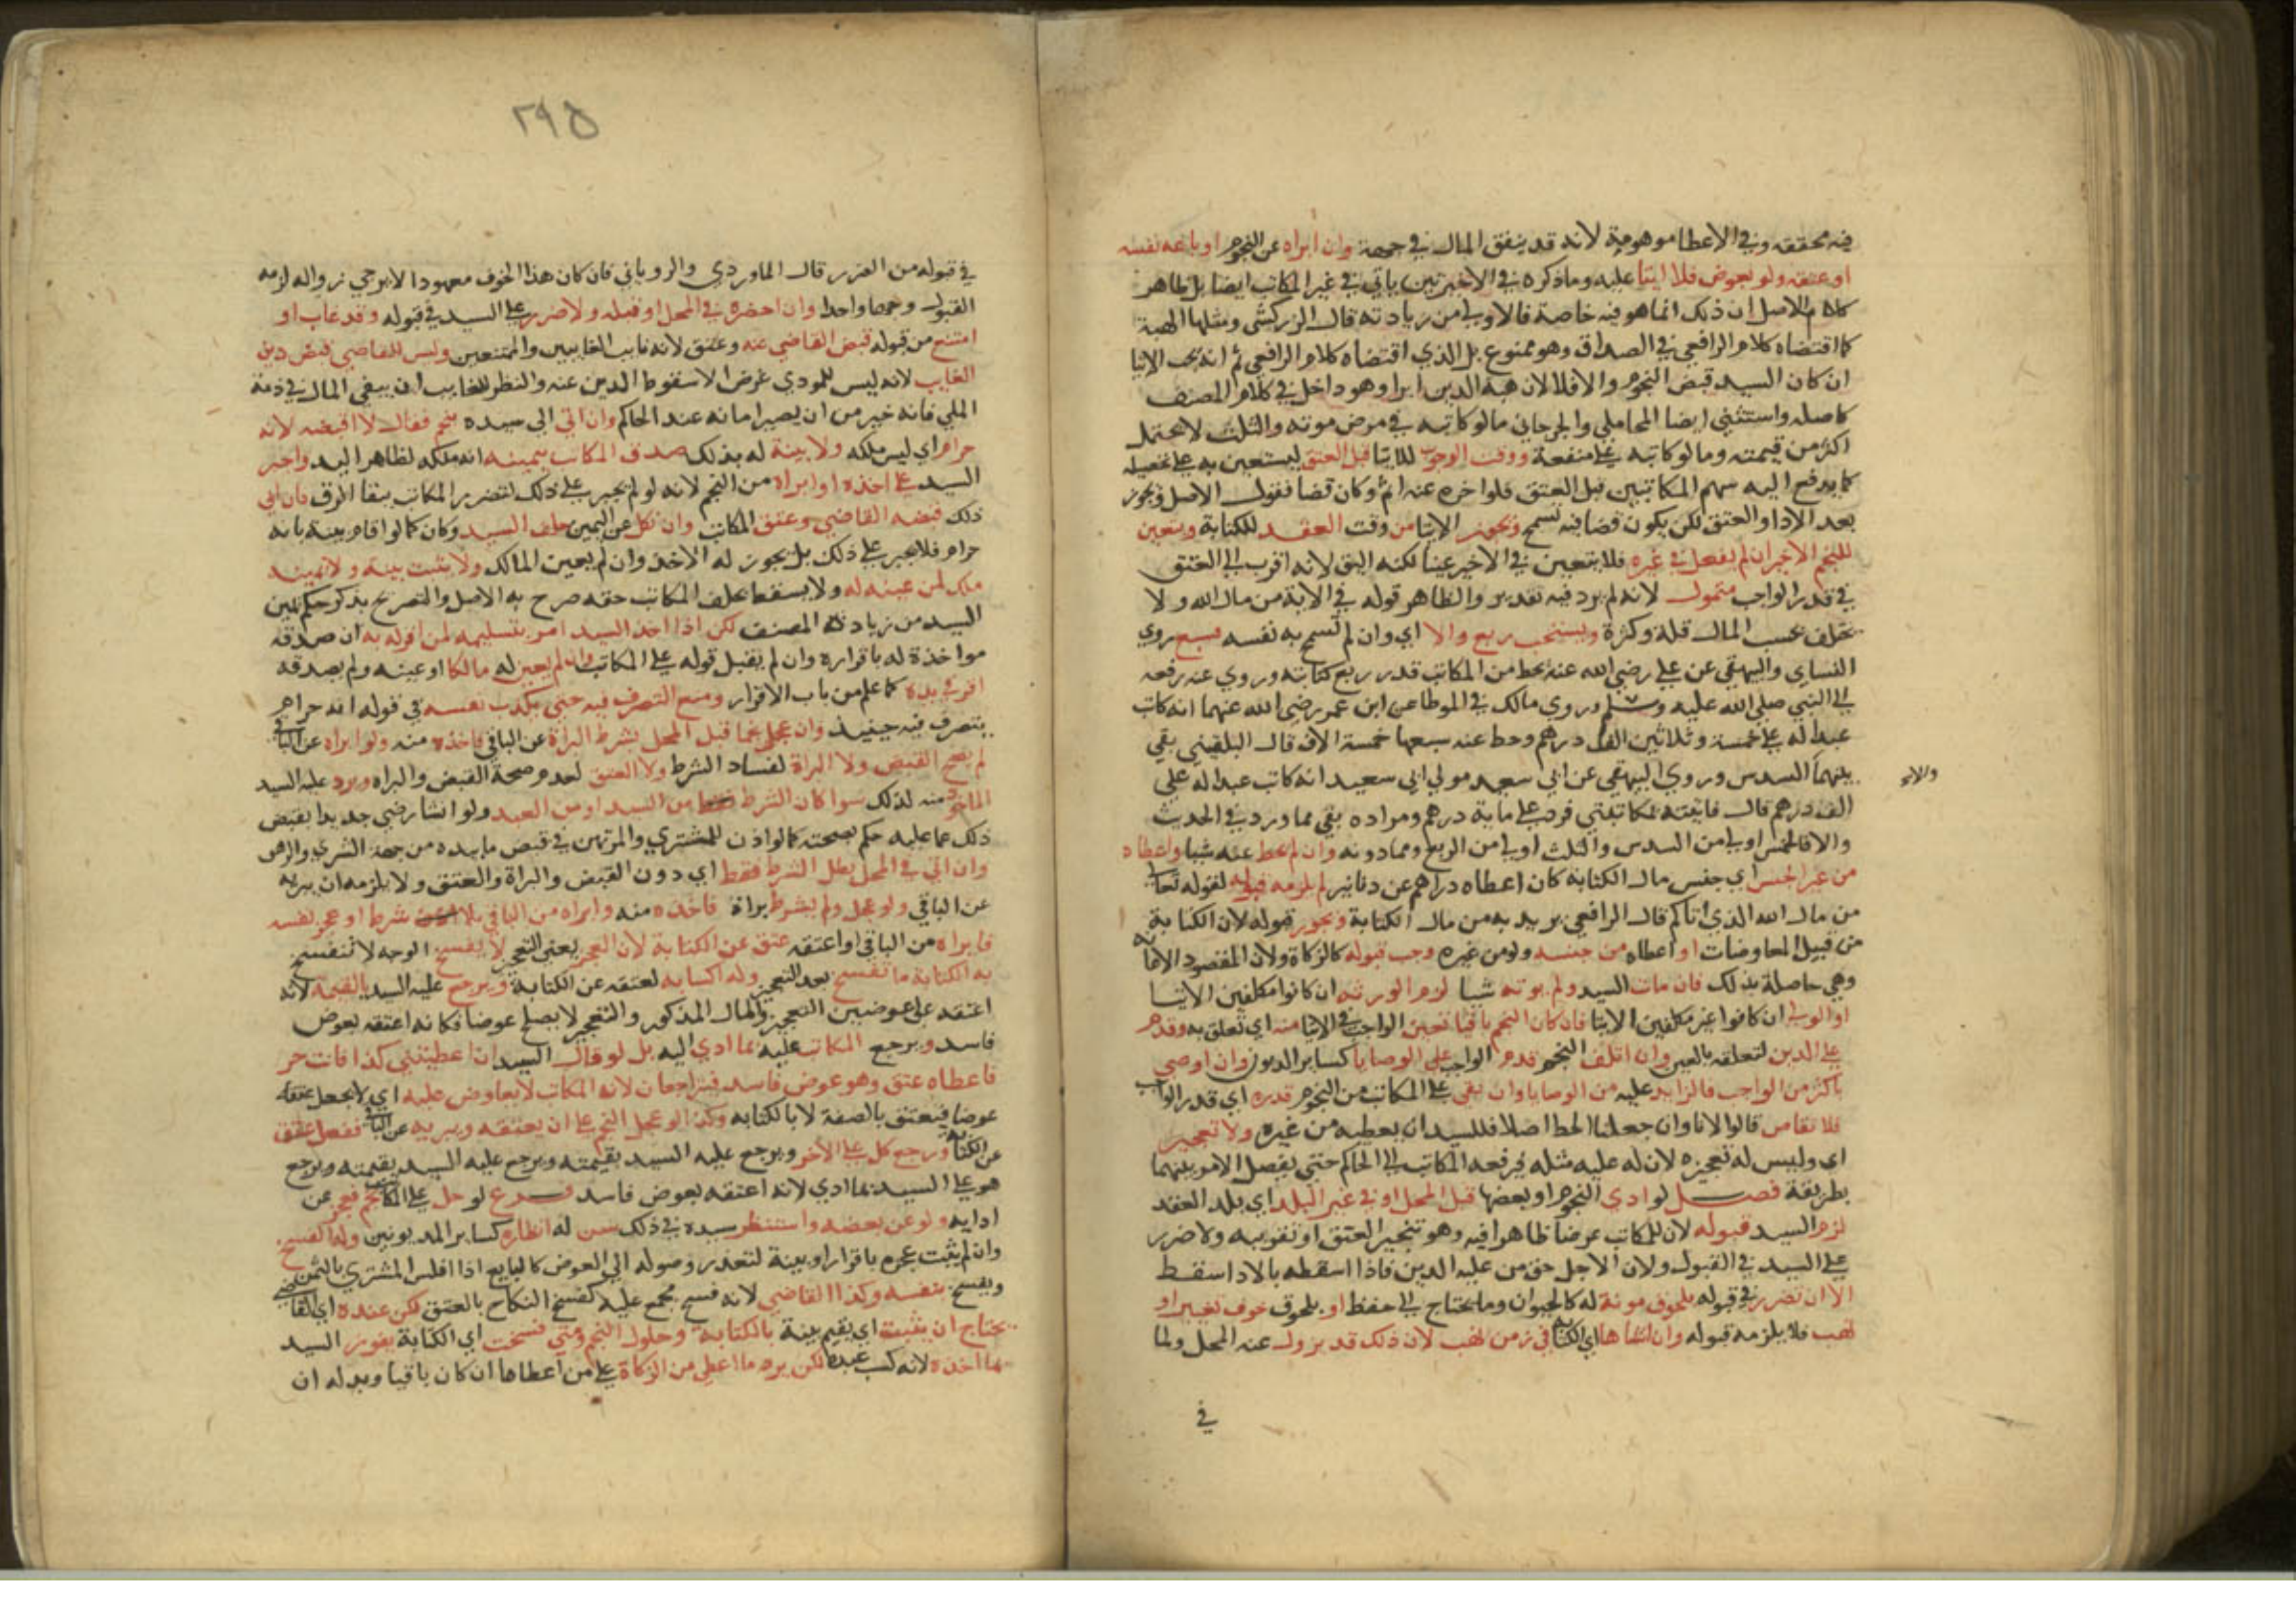 فيه محققه وفي الاعطا موهومة لانه قد ينفق المال في جهة وان ابراه عن النجوم او باعه نفسه
او عتقه ولو بعوض فلا ايتا عليه وما ذكره في الاخيرتين ياتي في غير المكاتب ايضا بل ظاهر
كلام الاصل ان ذلك انما هو فيه خاصة فالاولى من زيادته قال الزركشي ومثلها الهبة
كما اقتضاه كلام الرافعي في الصداق وهو ممنوع بل الذي اقتضاه كلام الرافعي ثم انه يجب الايتا
ان كان السيد قبض النجوم والا فلا لان هبة الدين ابرا وهو داخل في كلام المصنف
كاصله واستثنى ايضا المحاملي والجرجاني ما لو كاتبه في مرض موته والثلث لا يحتمل
اكثر من قيمته وما لو كاتبه على منفعة ووقت الوجوب للايتا قبل العتق ليستعين به على تحصيله
كما يدفع اليه سهم المكاتبين قبل العتق فلو اخره عنه اثم وكان قضا فقول الاصل ويجوز
بعد الادا والعتق لكن يكون قضا فيه تسمح ويجوز الايتا من وقت العقد للكتابة ويتعين
للنجم الاخير ان لم يفعل في غيره فلا يتعين في الاخير عينا لكنه اليق لانه اقرب الى العتق
في قدر الواجب متمول لانه لم يرد فيه تقدير والظاهر قوله في الاية من مال الله ولا
يختلف بحسب المال قلة وكثرة ويستحب ربع والا اي وان لم تسمح به نفسه فسبع روي
النساي والبيهقي عن علي رضي الله عنه يحط من المكاتب قدر ربع كتابته وروي عنه رفعه
الى النبي صلى الله عليه وسلم وروي مالك في الموطا عن ابن عمر رضي الله عنهما انه كاتب
عبدا له على خمسة وثلاثين الف درهم وحط عنه سبعها خمسة الاف قال البلقيني بقي
بينهما السدس وروي البيهقي عن ابي سعيد مولى ابي سعيد انه كاتب عبدا له على
الف درهم قال فاتيته بمكاتبتي فرد علي ماية درهم ومراده بقي مما ورد في الحديث
والا فالخمس اولى من السدس والثلث اولى من الربع ومما دونه وان لم يحط عنه شيا واعطاه
من غير الجنس اي جنس مال الكتابة كان اعطاه دراهم عن دنانير لم يلزمه قبوله لقوله تعالى
من مال الله الذي اتاكم قال الرافعي يريد به من مال الكتابة ويجوز قبوله لان الكتابة
من قبيل المعاوضات او اعطاه من جنسه ولو من غيره وجب قبوله كالزكاة ولان المقصود الاعانة
وهي حاصلة بذلك فان مات السيد ولم يوته شيا لزم الورثة ان كانوا مكلفين الايتا
او الولي ان كانوا غير مكلفين الايتا فان كان النجم باقيا تعين الواجب في الايتا منه اي تعلق به وقدم
على الدين لتعلقه بالعين وان اتلف النجم قدم الواجب على الوصايا كساير الديون وان اوصى
باكثر من الواجب فالزايد عليه من الوصايا وان بقي على المكاتب من النجوم قدره اي قدر الواجب
فلا تقاص قالوا لانا وان جعلنا الحط اصلا فللسيد ان يعطيه من غيره ولا تعجيز
اي وليس له تعجيزه لان له عليه مثله فيرفعه المكاتب الى الحاكم حتى يفصل الامر بينهما
بطريقة فصل لو ادى النجوم او بعضها قبل المحل او في غير البلد اي بلد العقد
لزم السيد قبوله لان للمكاتب غرضا ظاهرا فيه وهو تنجيز العتق او تقريبه ولا ضرر
على السيد في القبول ولان الاجل حق من عليه الدين فاذا اسقطه بالادا سقط
الا ان تضرر في قبوله بلحوق مونة له كالحيوان وما يحتاج الى حفظ او بلحوق خوف تغيير او
نهب فلا يلزمه قبوله وان انشاها اي الكتابة في زمن نهب لان ذلك قد يزول عند المحل ولما
في
٢٩٥
في قبوله من الضرر قال الماوردي والروياني فان كان هذا الخوف معهودا لا يرجى زواله لزمه
القبول وجها واحدا وان احضره في المحل او قبله ولا ضرر على السيد في قبوله وقد غاب او
امتنع من قبوله قبض القاضي عنه وعتق لانه نايب الغايبين والممتنعين وليس للقاضي قبض دين
الغايب لانه ليس للمودي غرض الا سقوط الدين عنه والنظر للغايب ان يبقى المال في ذمة
الملي فانه خير من ان يصير امانة عند الحاكم وان اتى الى سيده بنجم فقال لا اقبضه لانه
حرام اي ليس ملكه ولا بينة له بذلك صدق المكاتب بيمينه انه ملكه لظاهر اليد واجبر
السيد على اخذه او ابراه من النجم لانه لو لم يجبر على ذلك لتضرر المكاتب ببقا الرق فان ابى
ذلك قبضه القاضي وعتق المكاتب وان نكل عن اليمين حلف السيد وكان كما لو اقام بينة بانه
حرام فلا يجبر على ذلك بل يجوز له الاخذ وان لم يعين المالك ولا تثبت بينة ولا يمينه
ملك لمن عينه له ولا يسقط حلف المكاتب حقه صرح به الاصل والتصريح بذكر حكم يمين
السيد من زيادة المصنف لكن اذا اخذ السيد امر بتسليمه لمن اقر له به ان صدقه
مواخذة له باقراره وان لم يقبل قوله على المكاتب وان لم يعين له مالكا او عينه ولم يصدقه
اقر في يده كما علم من باب الاقرار ومنع التصرف فيه حتى يكذب نفسه في قوله انه حرام
يتصرف فيه حينيذ وان عجل نجما قبل المحل بشرط البراة عن الباقي فاخذه منه ولو ابراه عن الباقي
لم يصح القبض ولا البراة لفساد الشرط ولا العتق لعدم صحة القبض والبراه ويرد عليه السيد
الماخوذ منه لذلك سوا كان الشرط من السيد او من العبد ولو انشا رضى جديدا بقبض
ذلك عما عليه حكم بصحته كما لو اذن للمشتري والمرتهن في قبض ما بيده من جهة الشرى والرهن
وان اتى في المحل بطل الشرط فقط اي دون القبض والبراة والعتق ولا يلزمه ان يبريه
عن الباقي ولو عجل ولم يشرط براة فاخذه منه وابراه من الباقي بلا شرط او عجز نفسه
فابراه من الباقي او اعتقه عتق عن الكتابة لان العجز يعني التعجيز لا يفسخ الوجه لا تنفسخ
به الكتابة ما تفسخ بعد التعجيز وله اكسابه لعتقه عن الكتابة ويرجع عليه السيد بالقيمة لانه
اعتقه على عوضين التعجيز والمال المذكور والتعجيز لا يصلح عوضا فكانه اعتقه بعوض
فاسد ويرجع المكاتب عليه بما ادى اليه بل لو قال السيد ان اعطيتني كذا فانت حر
فاعطاه عتق وهو عوض فاسد فيتراجعان لانه المكاتب لا يعاوض عليه اي لا يجعل عتقه
عوضا فيعتق بالصفة لا بالكتابه وكذا لو عجل النجم على ان يعتقه ويبريه عن الباقي ففعل عتق
عن الكتابة ورجع كل على الاخر ويرجع عليه السيد بقيمته ويرجع عليه السيد بقيمته ويرجع
هو على السيد بما ادى لانه اعتقه بعوض فاسد فرع لو حل على المكاتب نجم فعجز عن
ادايه ولو عن بعضه واستنظر سيده في ذلك سن له انظاره كساير المديونين وله الفسخ
وان لم يثبت عجزه باقرار او بينة لتعذر وصوله الى العوض كالبايع اذا افلس المشتري بالثمن
ويفسخ بنفسه وكذا القاضي لانه فسخ مجمع عليه كفسخ النكاح بالعتق لكن عنده اي القاضي
يحتاج ان يثبت اي يقيم بينة بالكتابة وحلول النجم ومتى فسخت اي الكتابة يفوز السيد
بما اخذه لانه كسب عبده لكن يرد ما اعطي من الزكاة على من اعطاها ان كان باقيا وبدله ان